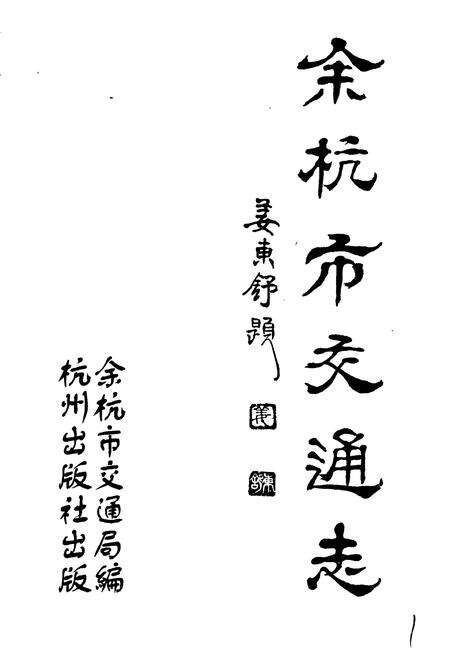 余杭市交通志
姜東舒題
姜
東舒
余杭市交通局編
杭州出版社出版